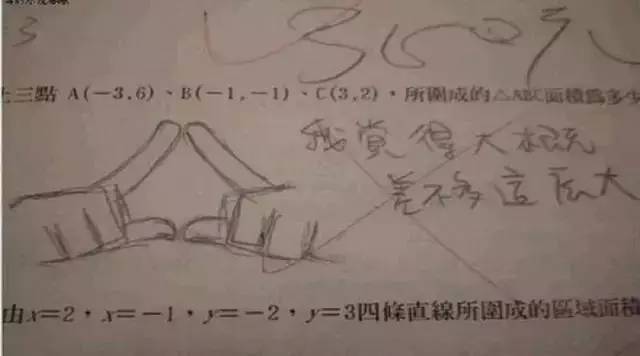 3
上三點 A(-3,6)、B(-1,-1)、C(3,2)，所圍成的△ABC面積為多少
我覺得大概
差不多這麼大
由x=2，x=-1，y=-2，y=3四條直線所圍成的區域面積